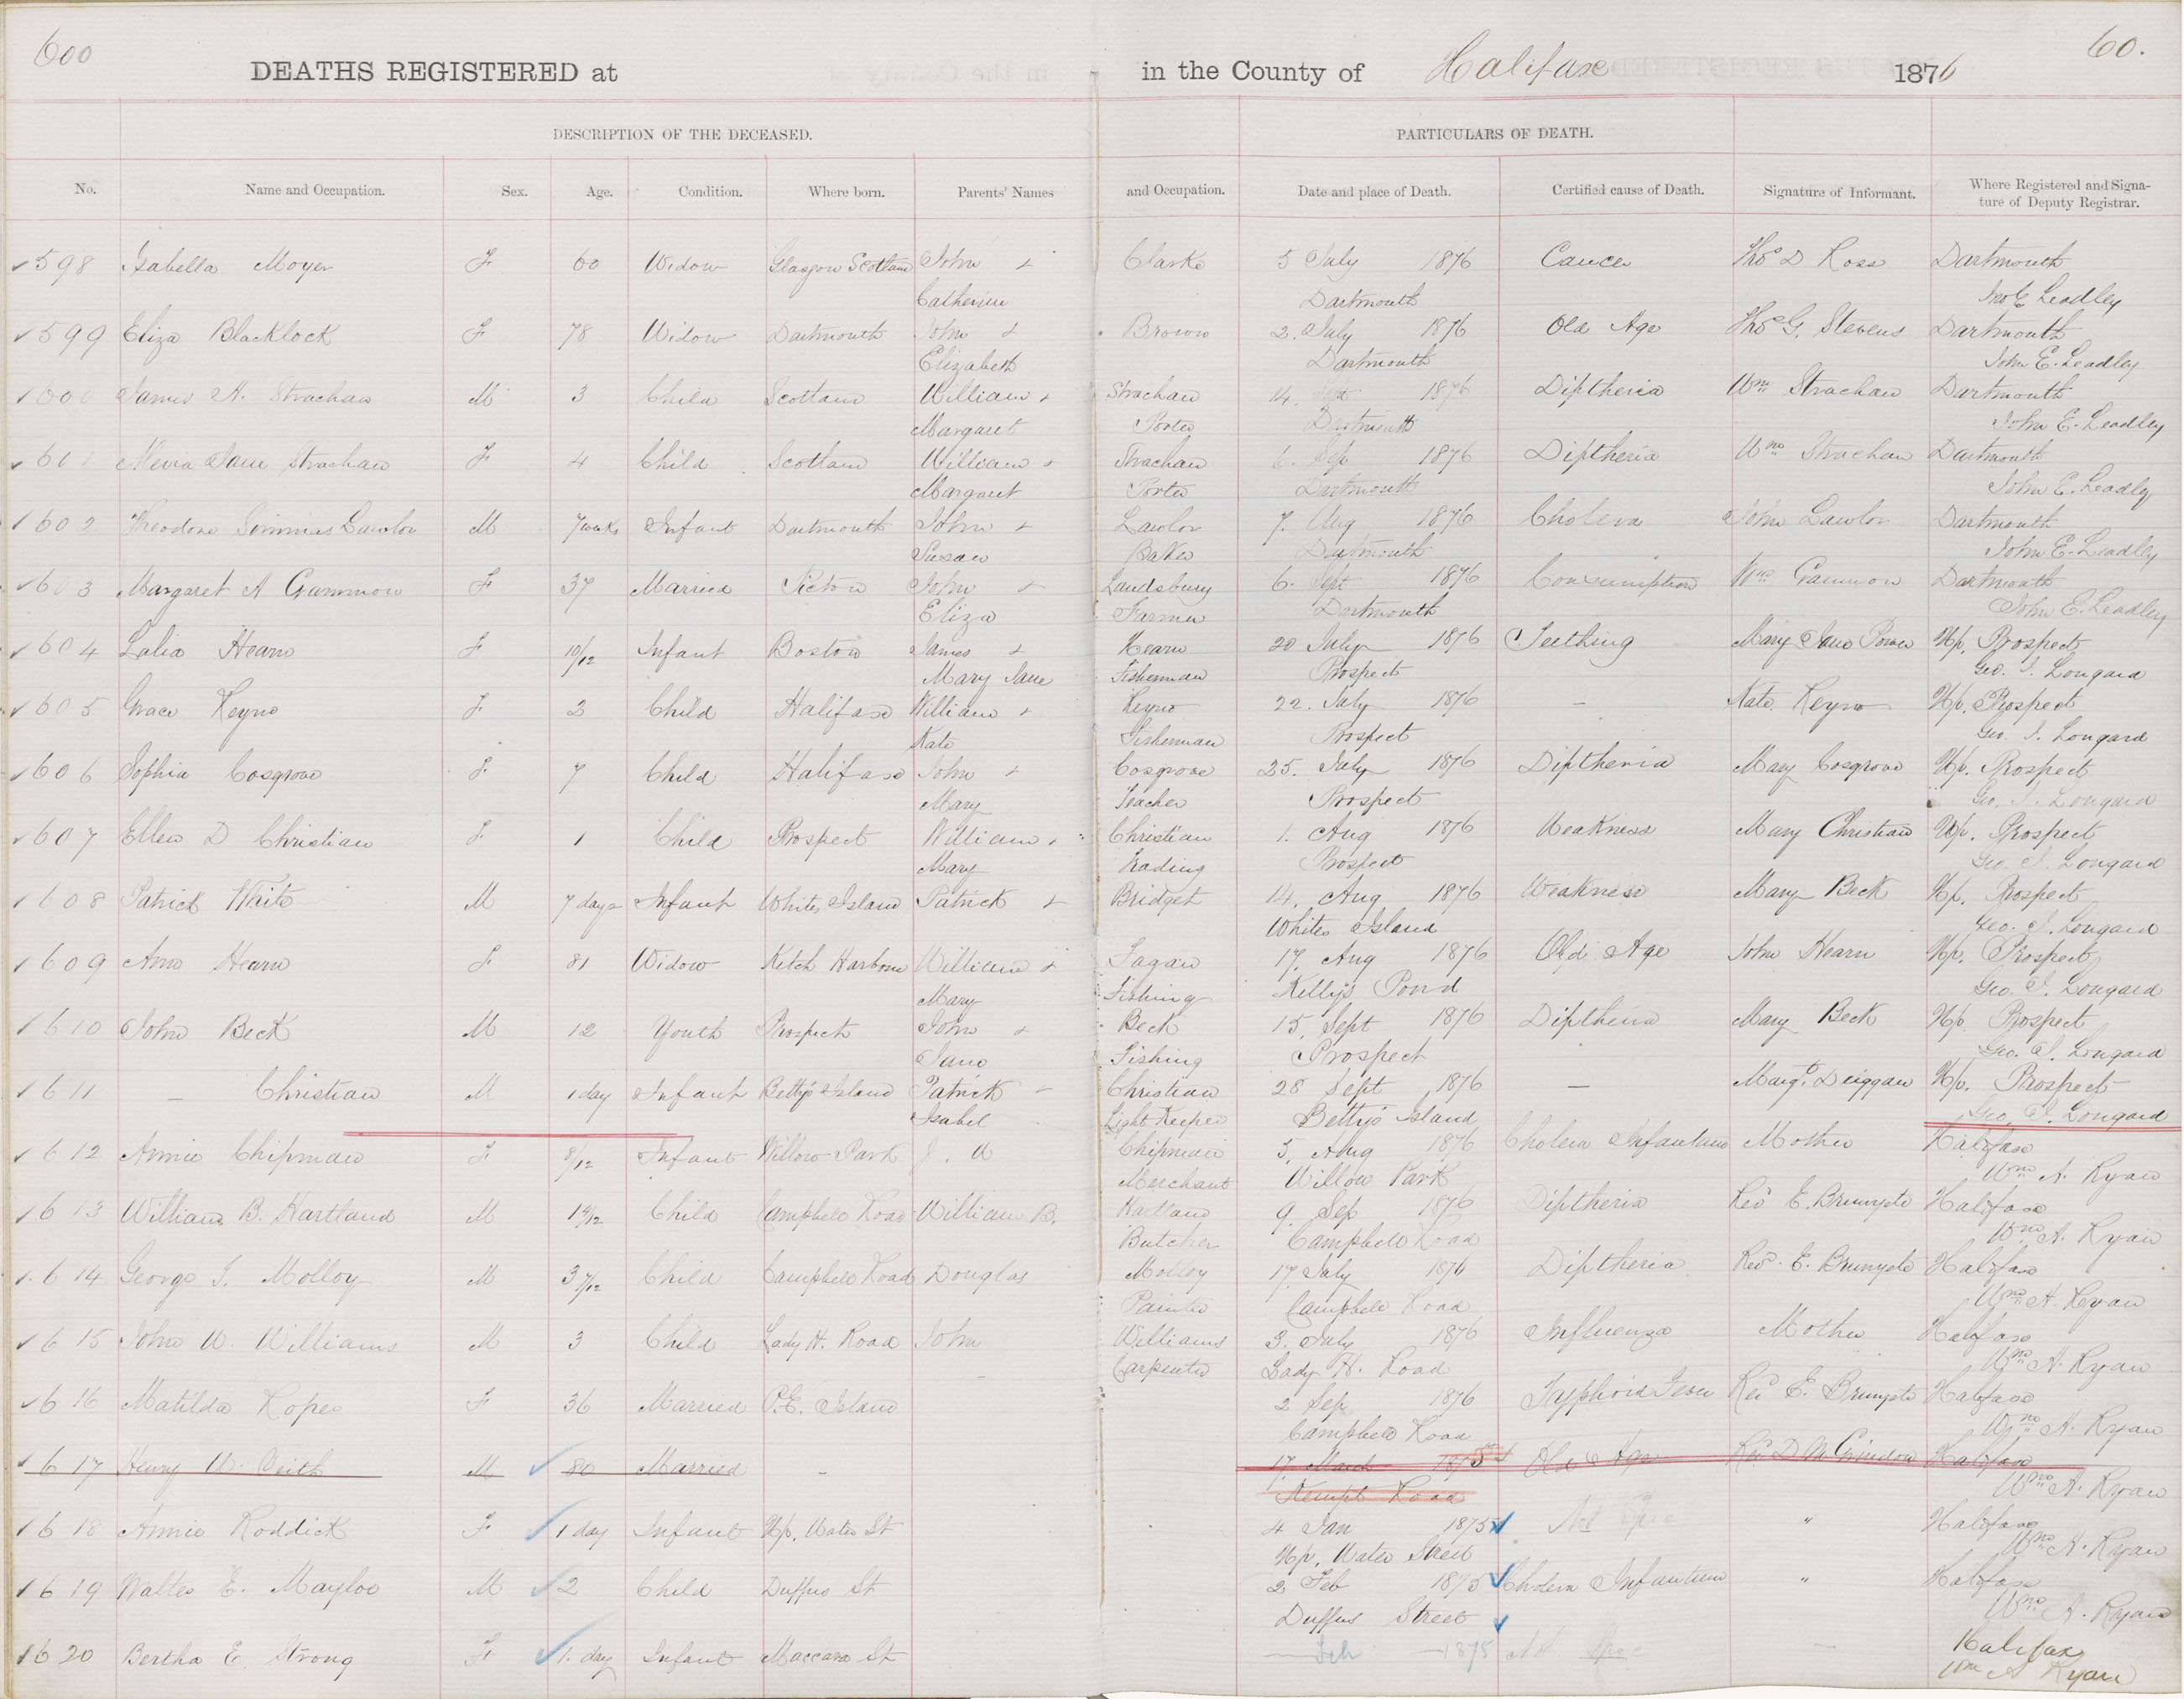 600
60.
DEATHS REGISTERED at in the County of Halifax 1876
DESCRIPTION OF THE DECEASED. PARTICULARS OF DEATH.
No. Name and Occupation. Sex. Age. Condition. Where born. Parents' Names and Occupation. Date and place of Death. Certified cause of Death. Signature of Informant. Where Registered and Signa-
ture of Deputy Registrar.
598 Isabella Moyer F 60 Widow Glasgow Scotland John + Clarke 5 July 1876 Cancer Thos D Ross Dartmouth
Catherine Dartmouth Jno E Leadley
599 Eliza Blacklock F 78 Widow Dartmouth John + Brown 2. July 1876 Old Age Thos G. Stevens Dartmouth
Elizabeth Dartmouth John E. Leadley
600 James A. Strachan M 3 Child Scotland William + Strachan 14. Sept 1876 Diptheria Wm Strachan Dartmouth
Margaret Porter Dartmouth John E. Leadley
601 Jane Strachan F 4 Child Scotland William + Strachan 6. Sep 1876 Diptheria Wm Strachan Dartmouth
Margaret Porter Dartmouth John E. Leadley
602 Theodore Simmas Lawlor M 7 weeks Infant Dartmouth John + Lawlor 7. Aug 1876 Cholera John Lawlor Dartmouth
Susan Baker Dartmouth John E. Leadley
603 Margaret A Gammon F 37 Married Pictou John + Landsbury 6. Sept 1876 Consumption Wm Gammon Dartmouth
Eliza Farmer Dartmouth John E. Leadley
604 Lalia Hearn F 10/12 Infant Boston James + Hearn 20 July 1876 Teething Mary Jane Power Up. Prospect
Mary Jane Fisherman Prospect Geo. I. Longard
605 Grace Keyno F 2 Child Halifax William + Keyno 22. July 1876 - Kate Keyno Up. Prospect
Kate Fisherman Prospect Geo. I. Longard
606 Sophia Cosgrove F. 7 Child Halifax John + Cosgrove 25. July 1876 Diptheria Mary Cosgrove Up. Prospect
Mary Teacher Prospect Geo. I. Longard
607 Ellen D Christian F. 1 Child Prospect William + Christian 1. Aug 1876 Weakness Mary Christian Up. Prospect
Mary Trading Prospect Geo. I. Longard
608 Patrick White M 7 days Infant Whites Island Patrick + Bridget 14. Aug 1876 Weakness Mary Beck Up. Prospect
Whites Island Geo. I. Longard
609 Ann Hearn F. 81 Widow Ketch Harbour William + Fagan 17. Aug 1876 Old Age John Hearn Up. Prospect
Mary Fishing Kelly's Pond Geo. I. Longard
610 John Beck M 12 Youth Prospect John + Beck 15. Sept 1876 Diptheria Mary Beck Up. Prospect
Jane Fishing Prospect Geo. I. Longard
611 - Christian M 1 day Infant Betty's Island Patrick - Christian 28 Sept 1876 - Margt. Duggan Up. Prospect
Isabel Light Keeper Betty's Island Geo. I. Longard
612 Annie Chipman F 8/12 Infant Willow Park J. W Chipman 5. Aug 1876 Cholera Infantum Mother Halifax
Merchant Willow Park Wm A. Ryan
613 William B. Hartland M Child Campbell Road William B. Hartland 9. Sep 1876 Diptheria Rev E. Brunyate Halifax
Butcher Campbell Road Wm A. Ryan
614 George I. Molloy M 3 7/12 Child Campbell Road Douglas Molloy 17 July 1876 Diptheria Rev. E. Brunyate Halifax
Painter Campbell Road Wm A. Ryan
615 John W. Williams M 3 Child Lady H. Road John Williams 3. July 1876 Influenza Mother Halifax
Carpenter Lady H. Road Wm A. Ryan
616 Matilda Roper F 36 Married P.E. Island 2 Sep 1876 Typhoid Fever Rev E. Brunyate Halifax
Campbell Road Wm A. Ryan
617 Henry W. Veith M 80 Married - 17 March 1875 Old Age Halifax
Kempt Road Wm A. Ryan
618 Annie Roddick F 1 day Infant Up. Water St 4 Jan 1875 " Halifax
Up. Water Street Wm A. Ryan
619 Walter E. Mayloo M 2 Child Duffus St 2 Feb 1875 Cholera Infantum " Halifax
Duffus Street Wm A. Ryan
620 Bertha E Strong F 1. day Infant Maccara St Feb 1875 - Halifax
Wm A Ryan